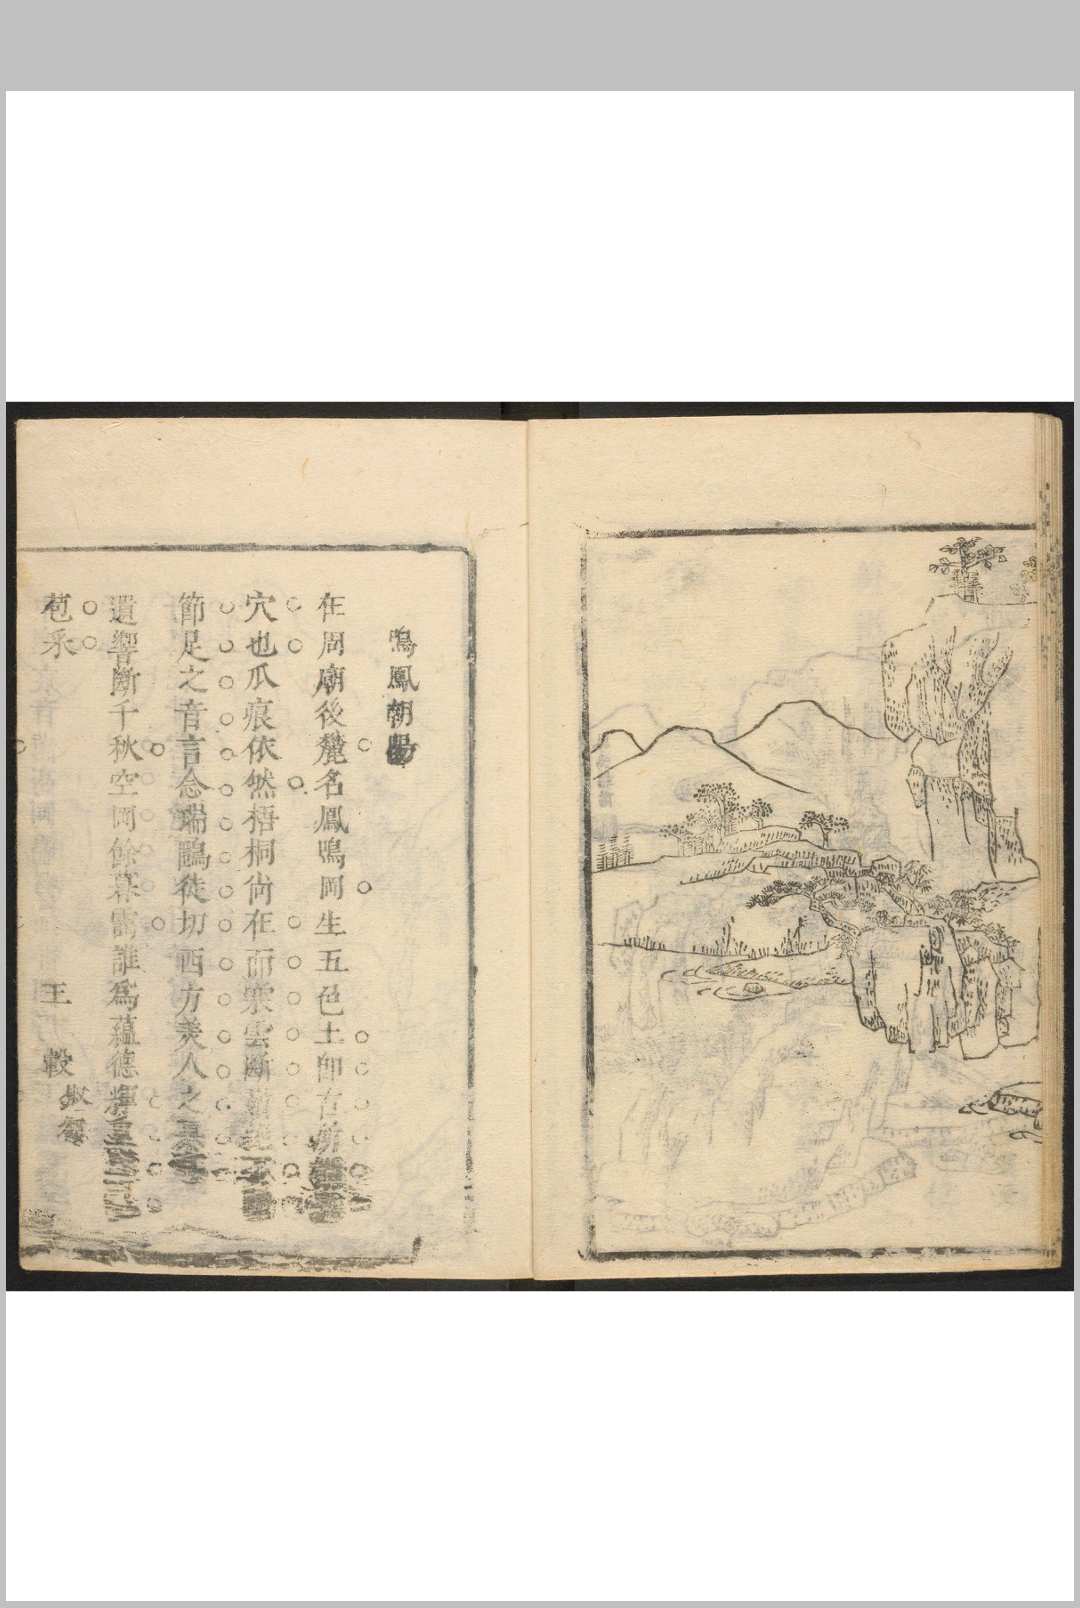 鳴鳳朝陽
在周廟後麓名鳳鳴岡生五色土卽古所
穴也爪痕依然梧桐尚在而寒雲斷
節足之音言念瑞鷗徒切西方美人之
遺響斷千秋空岡餘暮靄誰爲蘊德輝
苞采
王 轂